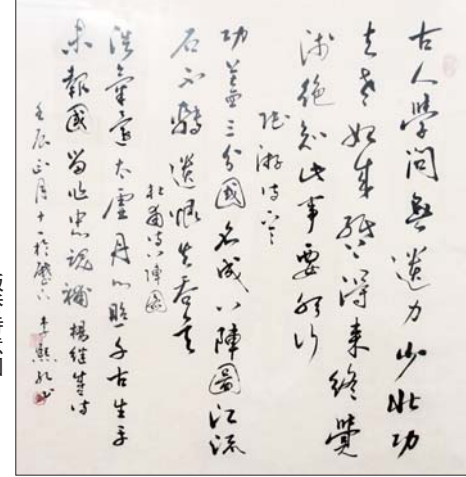 古人學問無遺力少壯功
夫老始成紙上得來終覺
淺絕知此事要躬行
陸游詩
功蓋三分國名成八陣圖江流
石不轉遺恨失吞吳
杜甫詩八陣圖
浩氣還太虛丹心照千古生平
未報國留作忠魂補 楊繼盛詩
壬辰正月十一於燈下 李熙